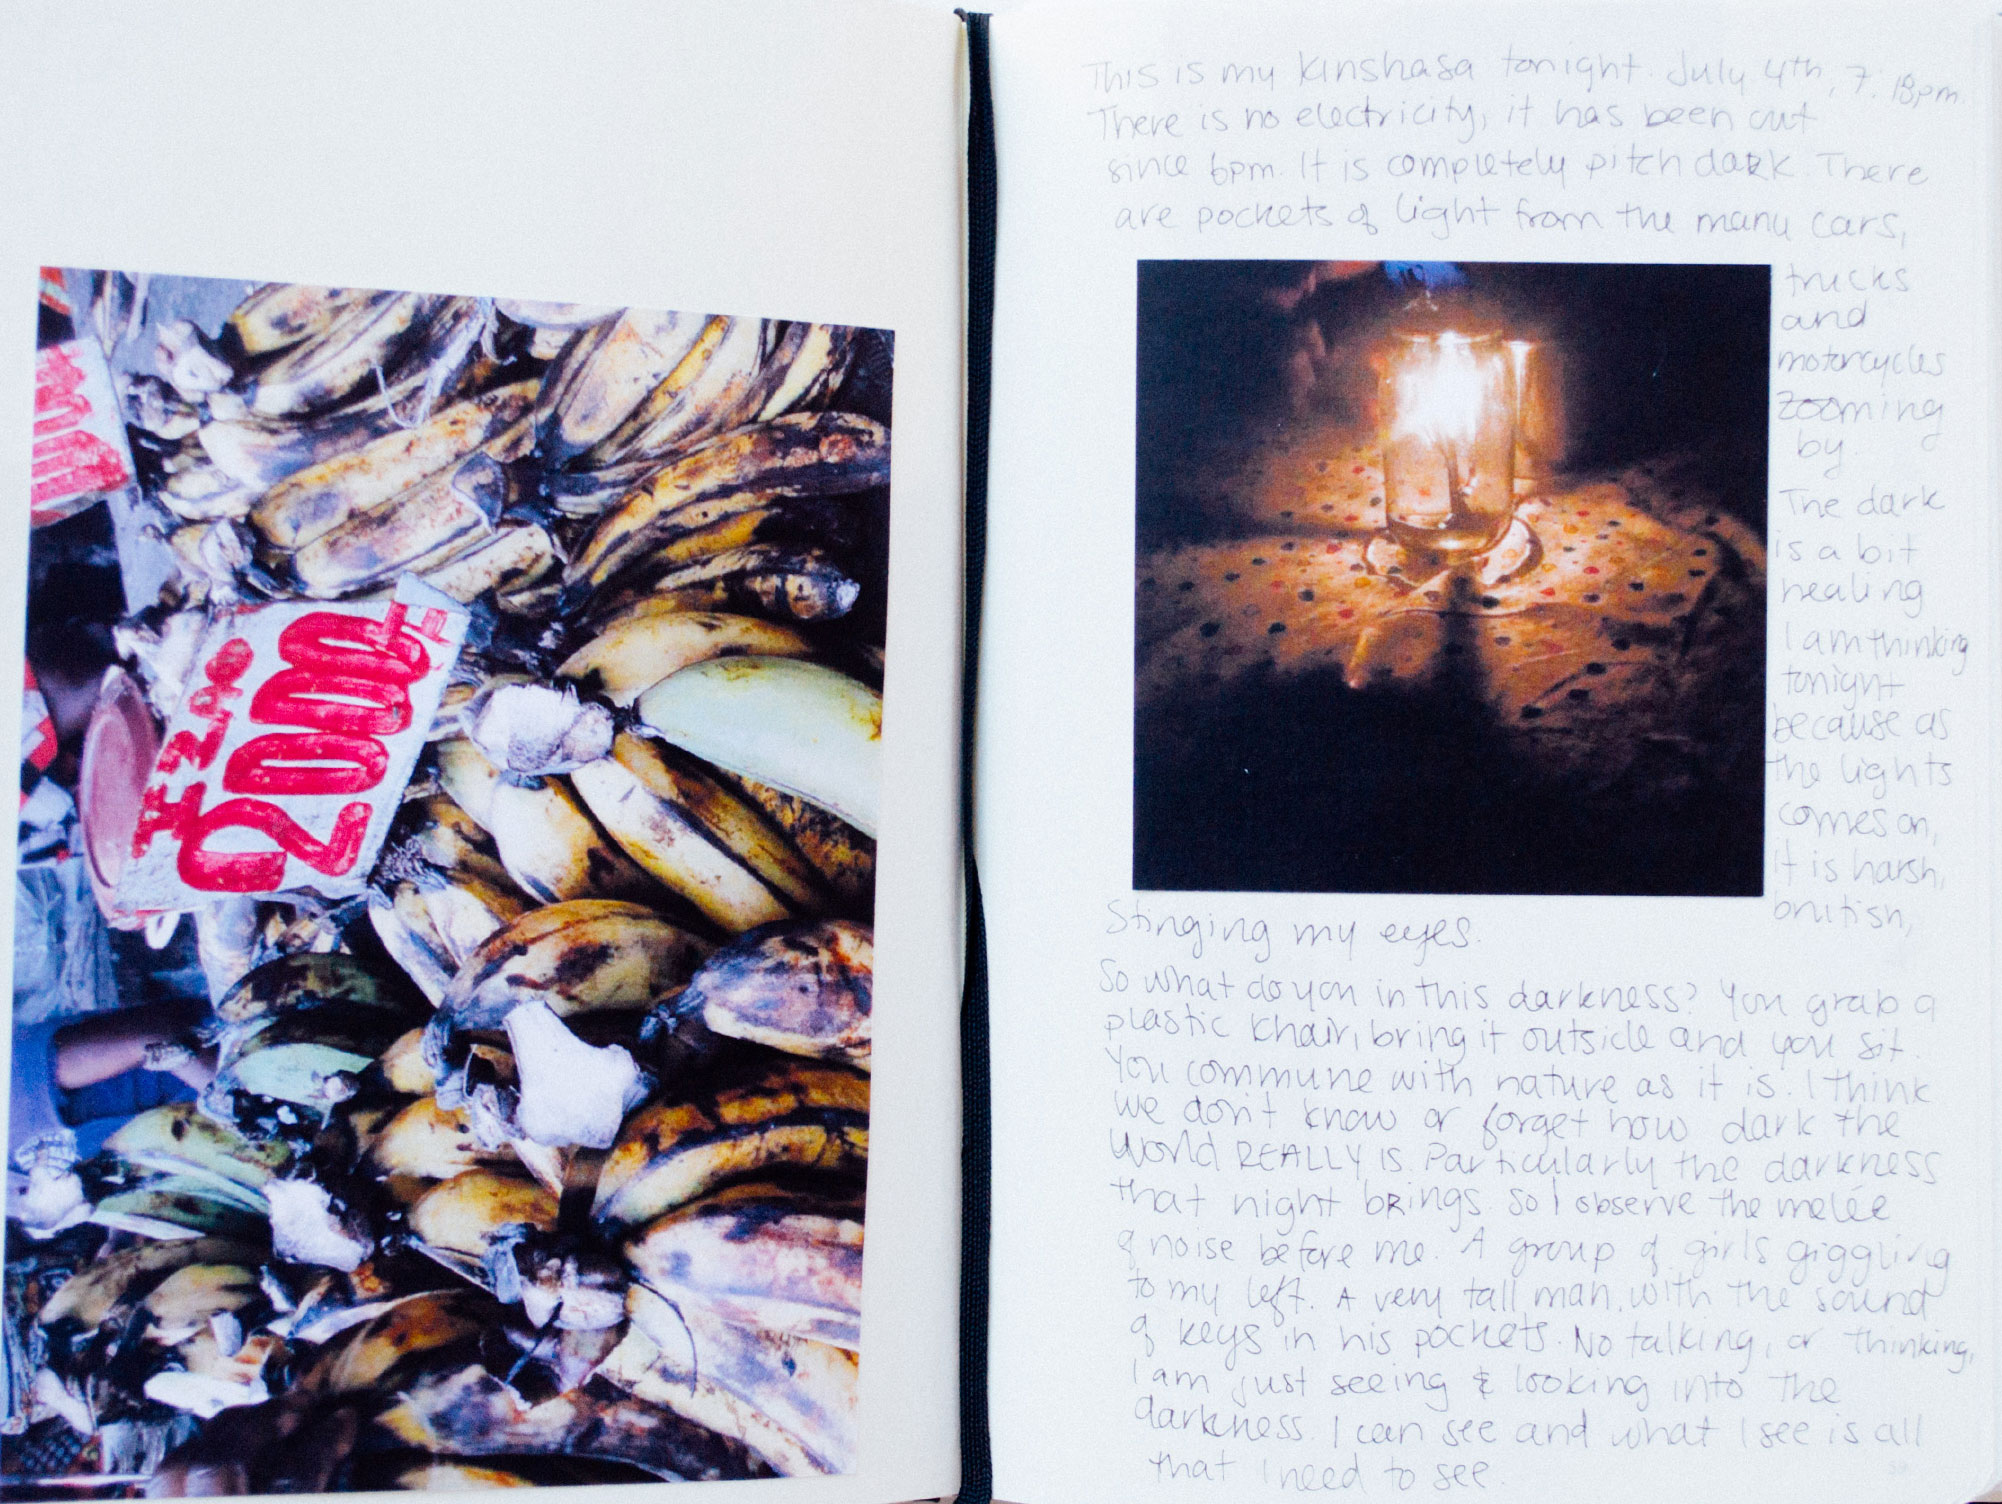 2000 F
This is my Kinshasa tonight. July 4th, 7:18pm.
There is no electricity, it has been out
since 6pm. It is completely pitch dark. There
are pockets of light from the many cars,
trucks
and
motorcycles
zooming
by.
The dark
is a bit
healing
I am thinking
tonight
because as
the lights
comes on,
it is harsh,
brutish,
Stinging my eyes.
So what do you in this darkness? You grab a
plastic khair, bring it outside and you sit.
You commune with nature as it is. I think
we don't know or forget how dark the
World REALLY IS. Particularly the darkness
that night brings. So I observe the melée
of noise before me. A group of girls giggling
to my left. A very tall man, with the sound
of keys in his pockets. No talking, or thinking,
I am just seeing & looking into the
darkness. I can see and what I see is all
that I need to see.